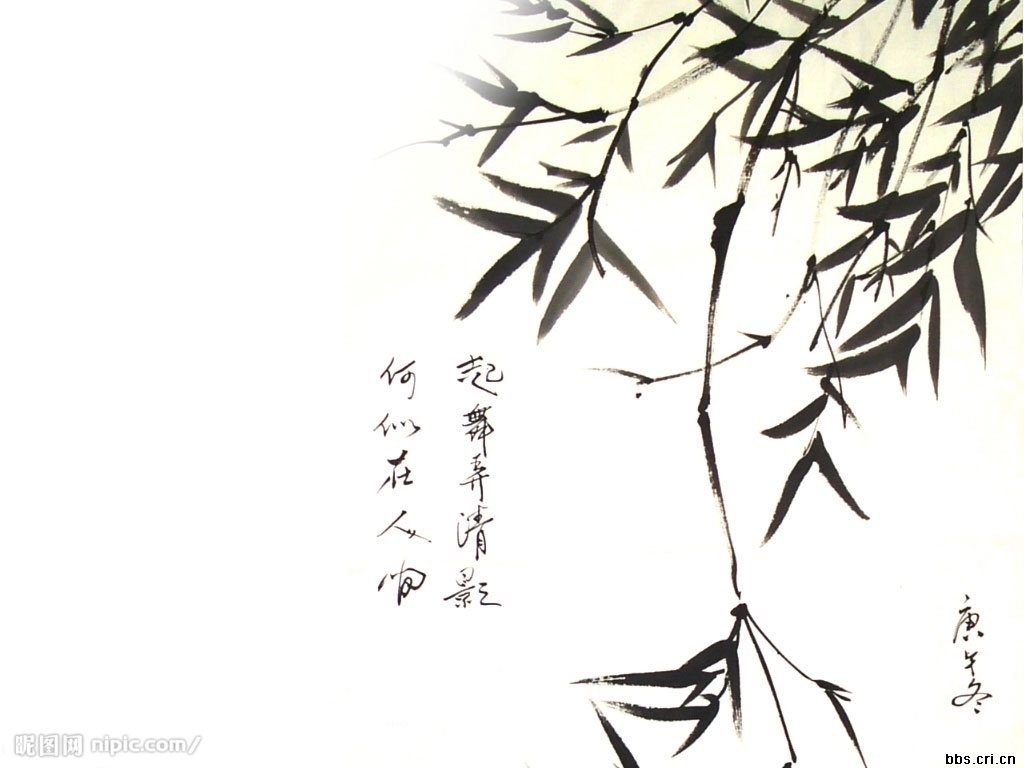 起舞弄清影
何似在人间
庚午冬
昵图网 nipic.com/
bbs.cri.cn